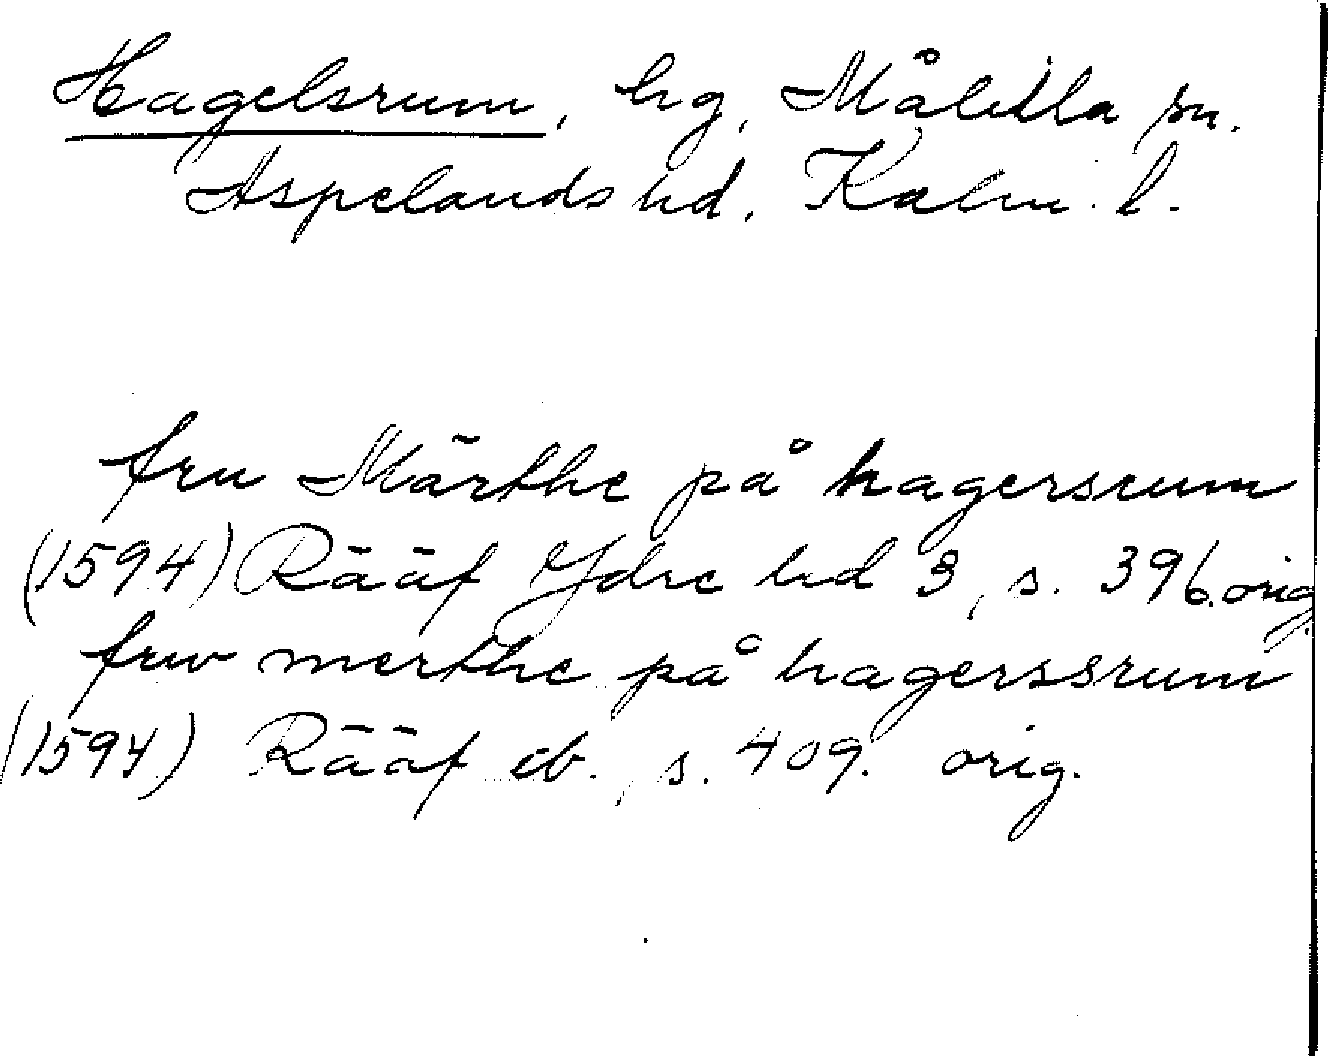 Hagelsrum, hg, Målilla sn.
Aspelands hd, Kalm. l.
fru Märthe på hagersrum
(1594) Rääf Ydre hd 3, s. 396. orig.
fruv merthe på hagerssrum
(1594) Rääf ib., s. 409. orig.